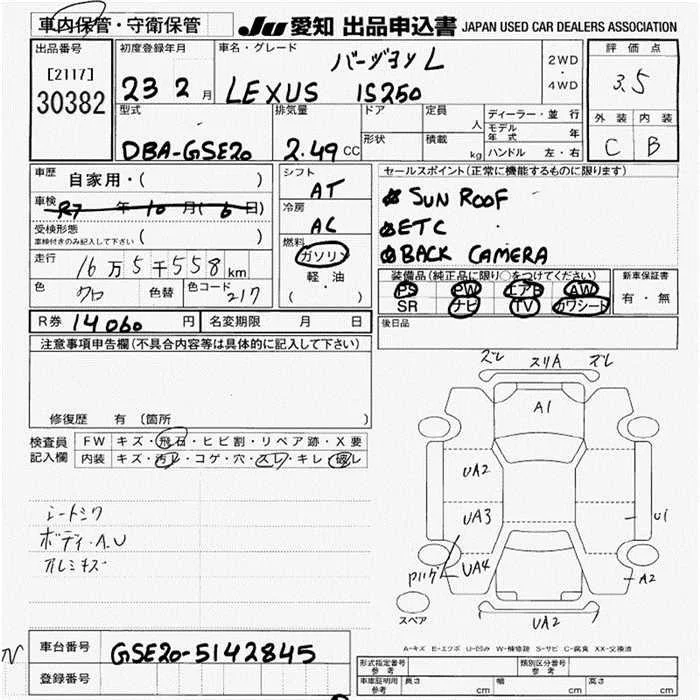 車内保管・守衛保管
JU 愛知 出品申込書 JAPAN USED CAR DEALERS ASSOCIATION
出品番号 [2117] 30382
初度登録年月 23 2月
車名・グレード バージョンL
LEXUS IS250
2WD・4WD
評価点 3.5
外装 内装
C B
型式 DBA-GSE20
排気量 2.49 CC
ドア
形状
定員 人
積載 kg
ディーラー・並行
モデル年式 年
ハンドル 左・右
車歴 自家用・( )
車検 R7年10月(6日)
受検形態 車検付きのみ記入して下さい ( )
走行 16万5千558km
色 クロ 色替 色コード 217
シフト AT
冷房 AC
燃料 ガソリン
軽・油
( ・ )
セールスポイント(正常に機能するものに限ります)
SUN ROOF
ETC
BACK CAMERA
装備品(純正品に限り○をつけてください)
PS PW エアB AW
SR ナビ TV カワシート
新車保証書
有・無
後日品
R券 14060円
名変期限 月 日
注意事項申告欄(不具合内容等は具体的に記入して下さい)
修復歴 有 (箇所 )
検査員記入欄
FW キズ・飛石・ヒビ割・リペア跡・X要
内装 キズ・汚レ・コゲ・穴・スレ・キレ・破レ
シートシワ
ボディ・A.U
アルミキズ
ズレ スリA ズレ
A1
UA2
UA3
U1
UA4
A2
UA2
スペア
A-キズ E-エクボ U-凹み W-補修跡 S-サビ C-腐食 XX-交換済
N
車台番号 GSE20-5142845
登録番号
形式指定番号 参考
類別区分番号 参考
車庫証明用 参考 長さ cm 幅 cm 高さ cm